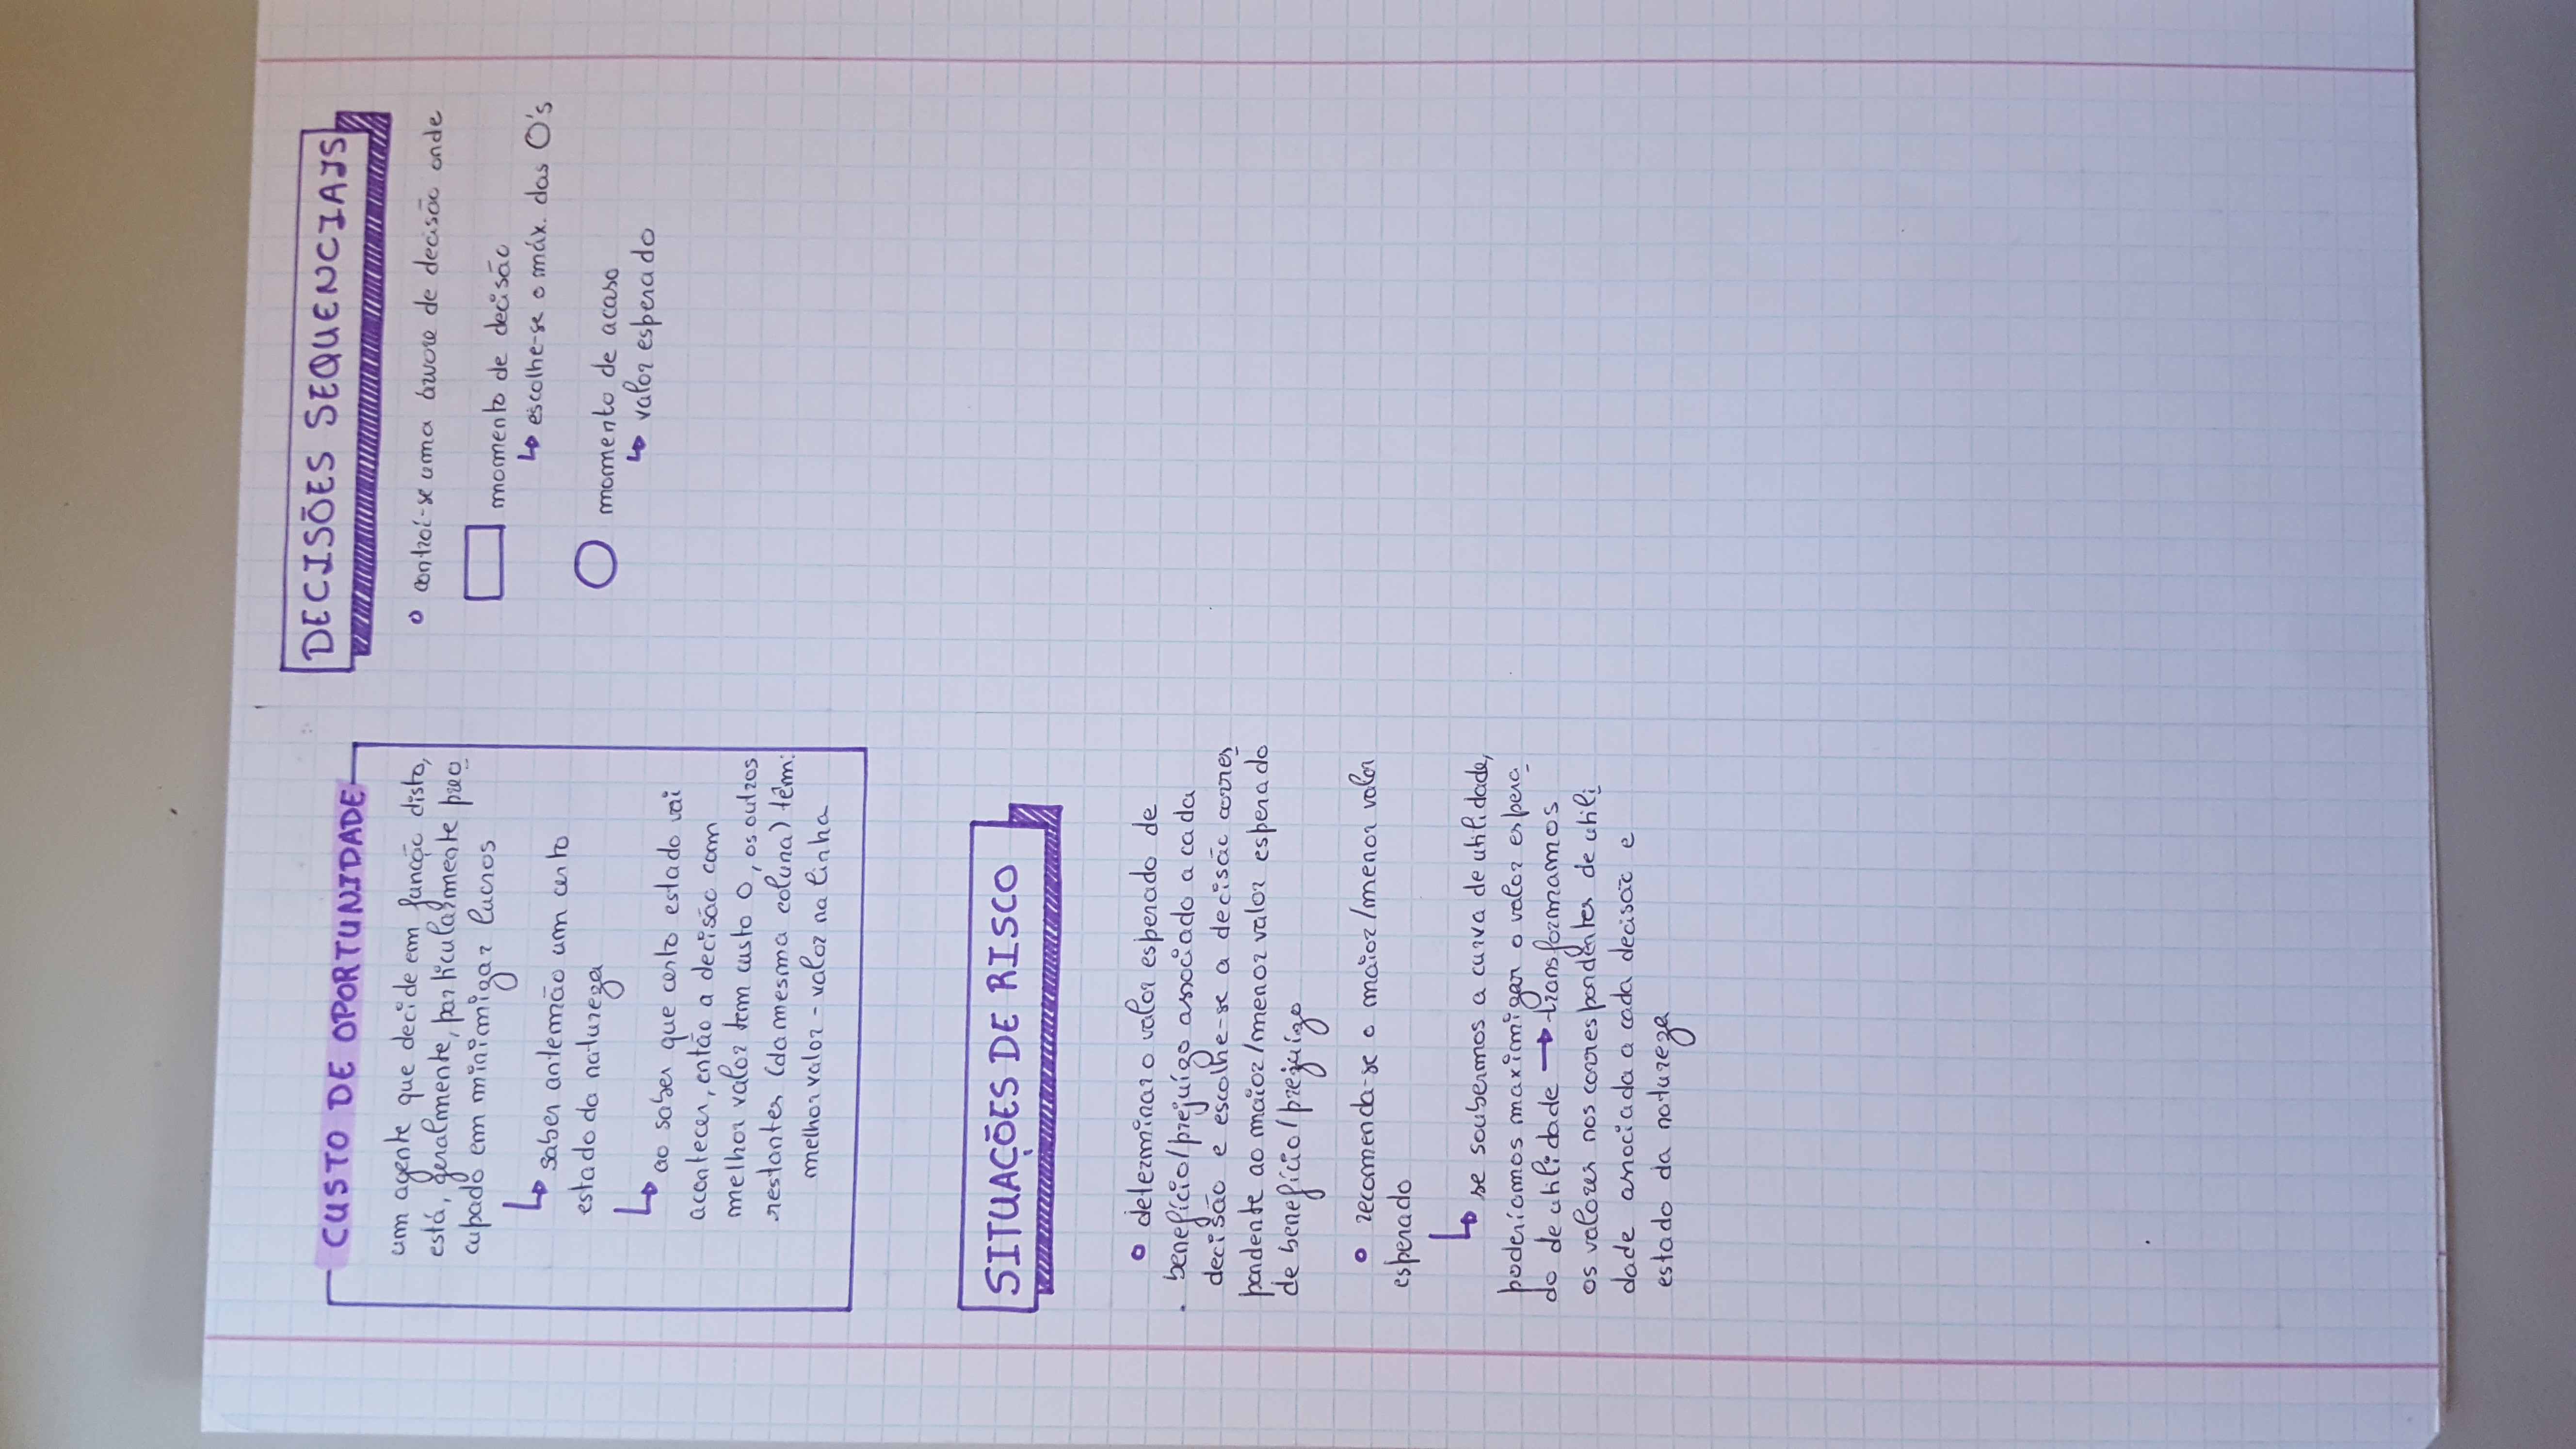 CUSTO DE OPORTUNIDADE
um agente que decide em função disto,
está, geralmente, particularmente preo
cupado em minimizar lucros
↳ saber antemão um certo
estado da natureza
↳ ao saber que certo estado vai
acontecer, então a decisão com
melhor valor tem custo 0, os outros
restantes (da mesma coluna) têm:
melhor valor - valor na linha
SITUAÇÕES DE RISCO
• determinar o valor esperado de
benefício/prejuízo associado a cada
decisão e escolhe-se a decisão corres
pondente ao maior/menor valor esperado
de benefício/prejuízo
• recomenda-se o maior/menor valor
esperado
↳ se soubermos a curva de utilidade,
poderíamos maximizar o valor espera
do de utilidade → transformamos
os valores nos correspondentes de utili
dade associada a cada decisão e
estado da natureza
DECISÕES SEQUENCIAIS
• controi-se uma árvore de decisão onde
momento de decisão
↳ escolhe-se o máx. das O's
momento de acaso
↳ valor esperado